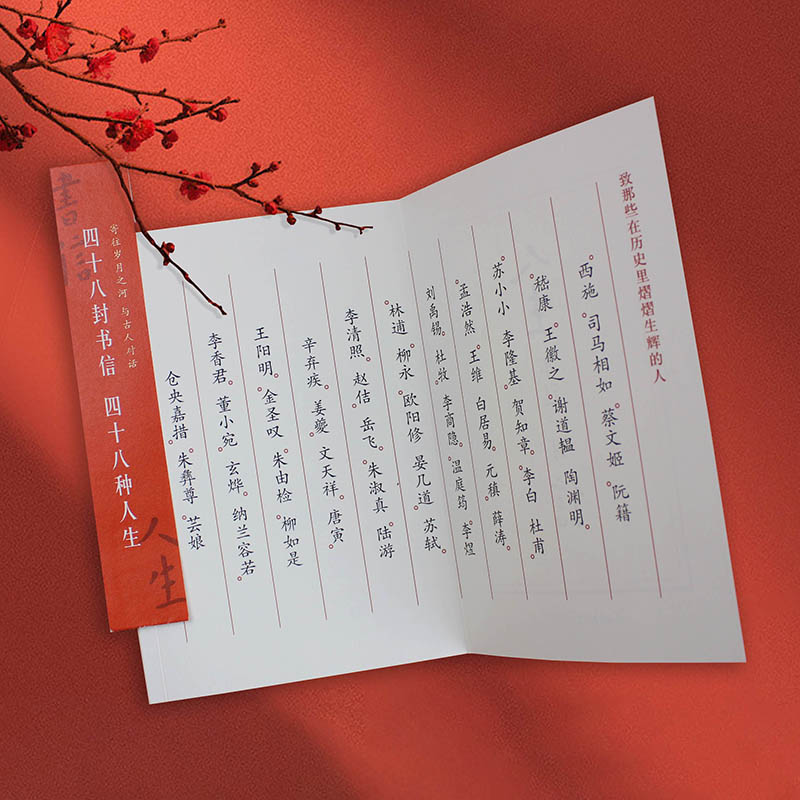 致那些在历史里熠熠生辉的人
西施。司马相如。蔡文姬。阮籍
嵇康。王徽之。谢道韫。陶渊明。
苏小小。李隆基。贺知章。李白。杜甫
孟浩然。王维。白居易。元稹。薛涛。
刘禹锡。杜牧。李商隐。温庭筠。李煜
林逋。柳永。欧阳修。晏几道。苏轼。
李清照。赵佶。岳飞。朱淑真。陆游
辛弃疾。姜夔。文天祥。唐寅。
王阳明。金圣叹。朱由检。柳如是
李香君。董小宛。玄烨。纳兰容若
仓央嘉措。朱彝尊。芸娘
寄往岁月之河 与古人对话
四十八封书信 四十八种人生
書信
人生